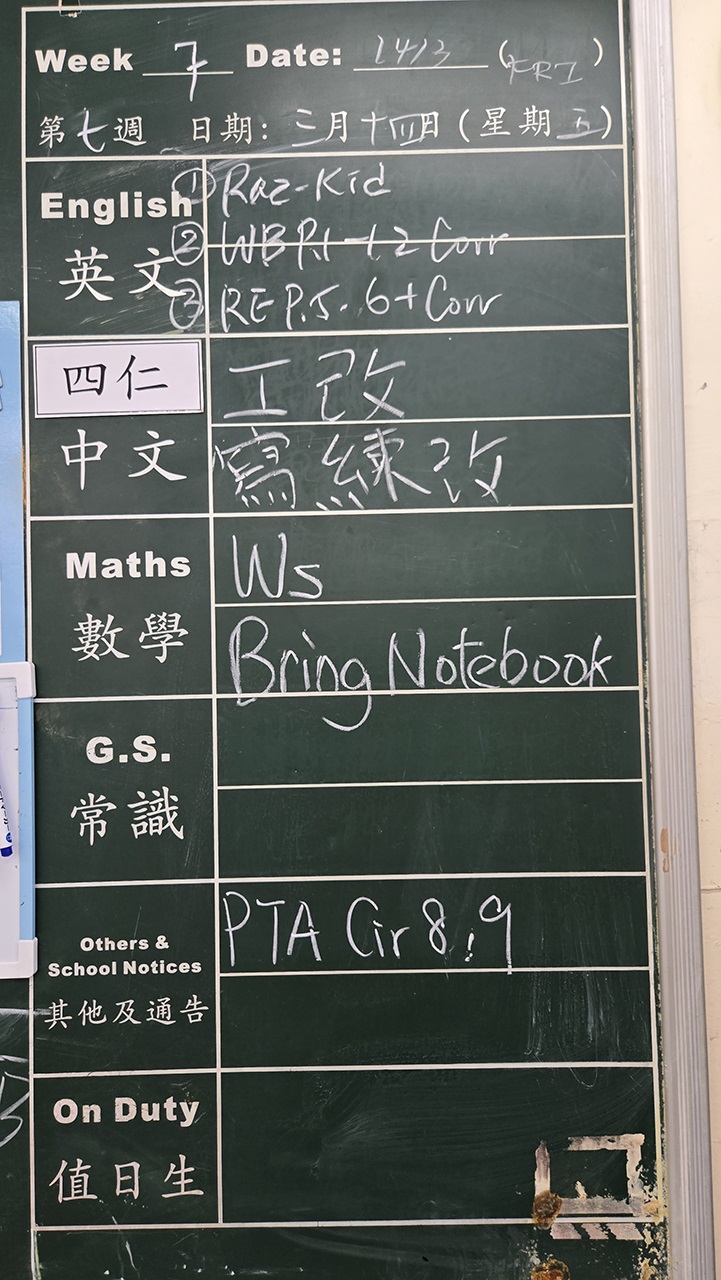 Week 7 Date: 14/3 (FRI)
第七週 日期: 三月十四日 (星期五)
English ① Raz-Kid
② WB P.1-12 Corr
英文 ③ RE P.5-6+Corr
四仁 工改
中文 寫練改
Maths Ws
數學 Bring Notebook
G.S.
常識
PTA Cir 8,9
Others &
School Notices
其他及通告
On Duty
值日生